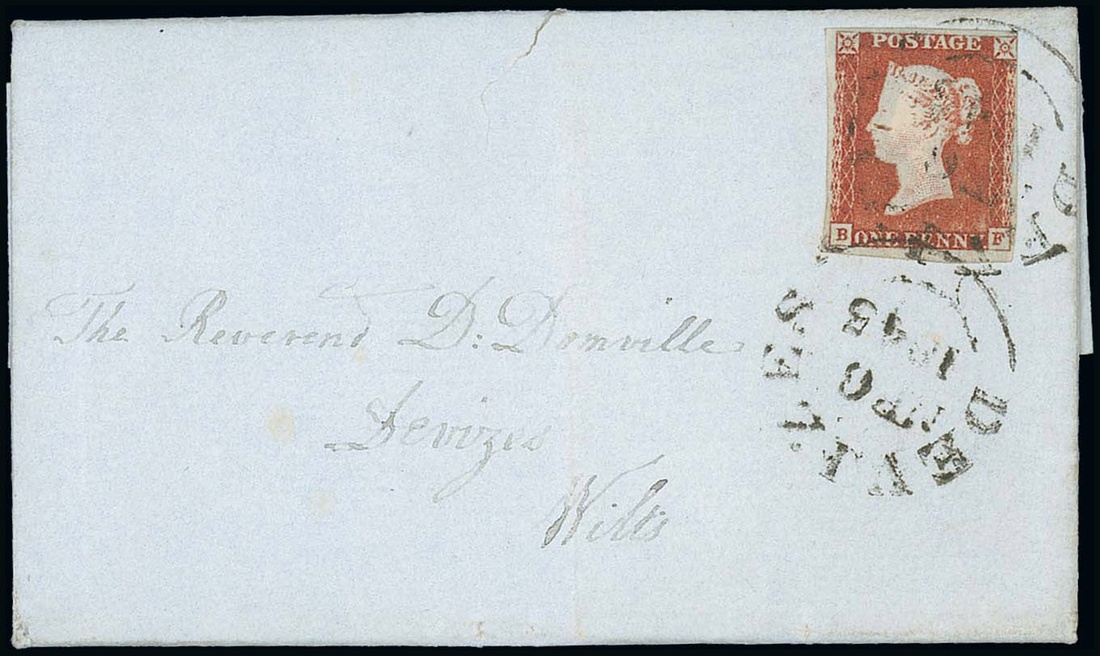 POSTAGE
B ONE PENNY F
The Reverend D: Domville
Devizes
Wilts
DEVIZES
1843